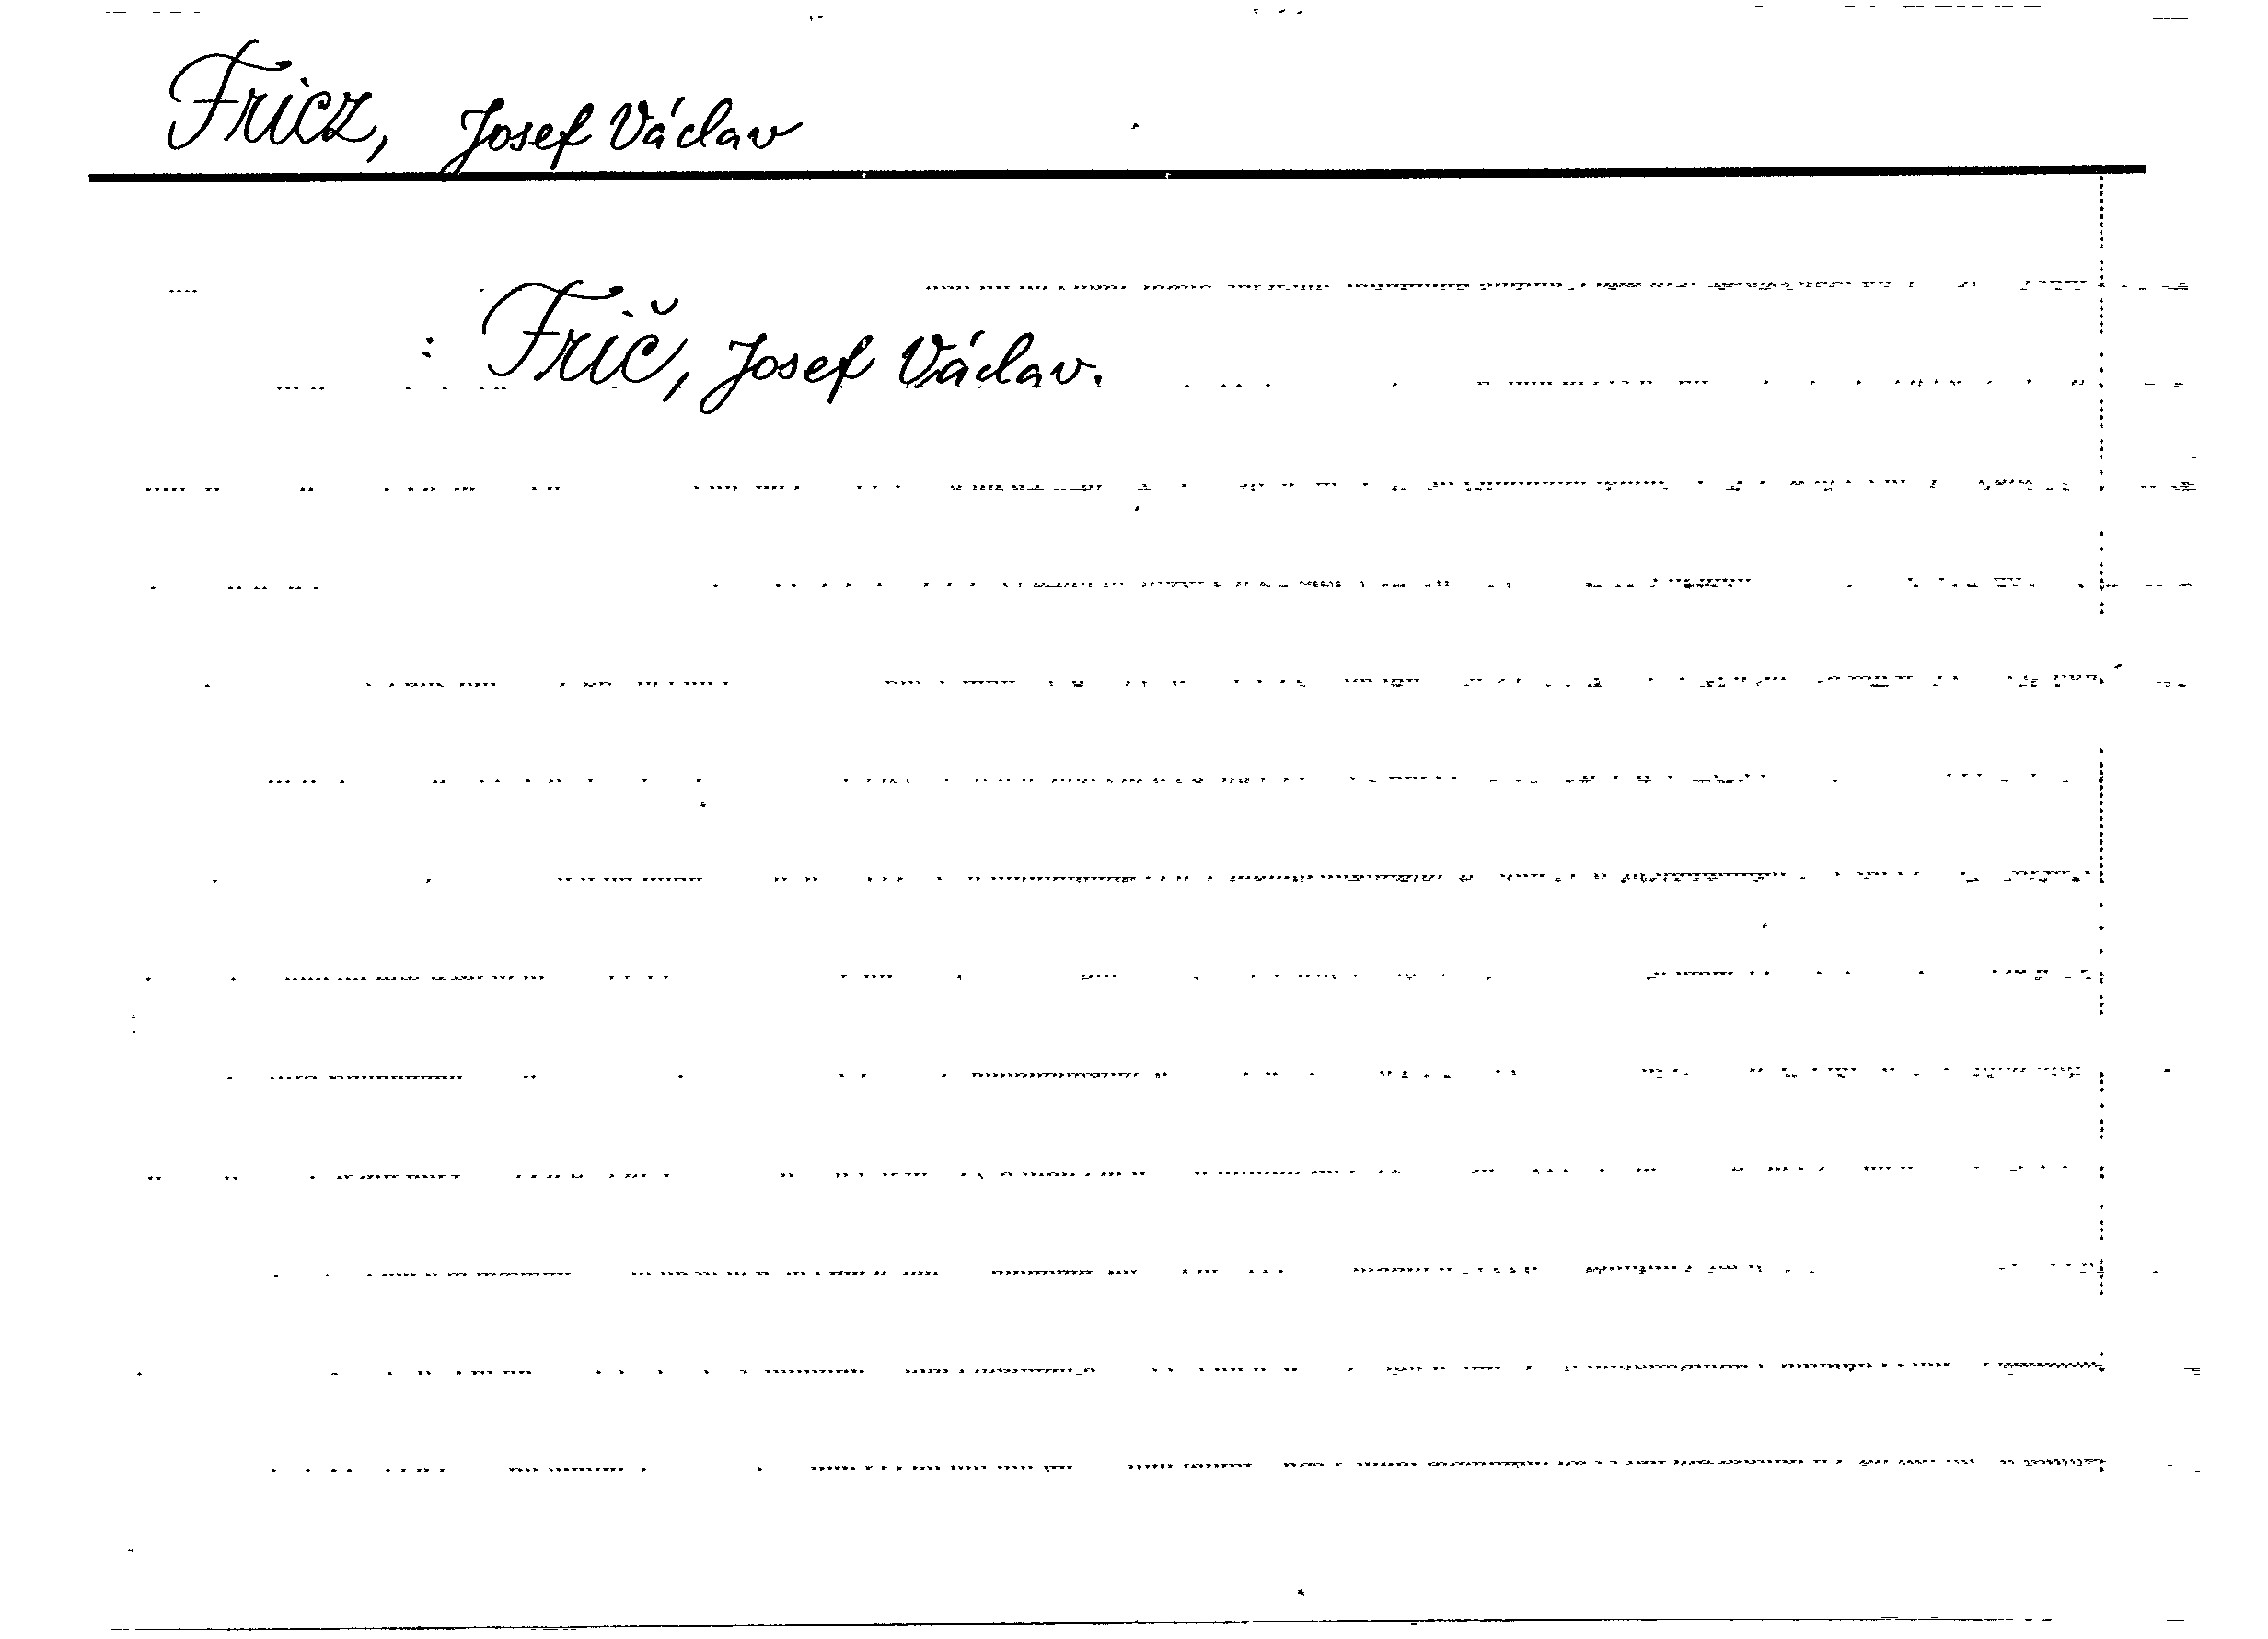 Fricz, Josef Václav
: Frič, Josef Václav.